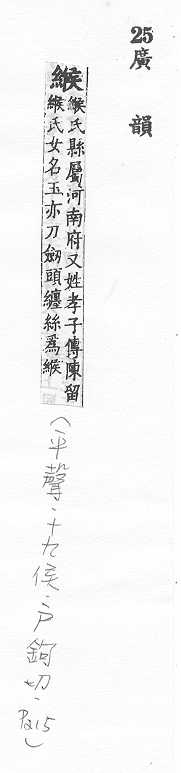 25廣韻
緱
緱氏縣屬河南府又姓孝子傳陳留
緱氏女名玉亦刀劒頭纏絲爲緱
(平聲.十九侯.戶鉤切.P215)